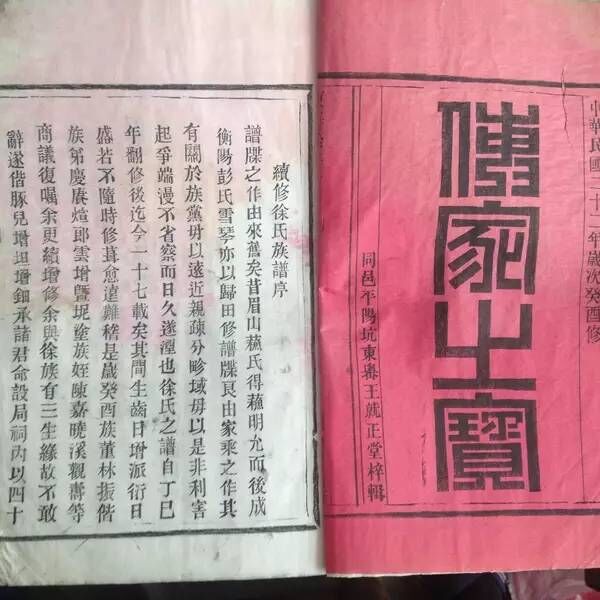 中華民國二十二年歲次癸酉修
傳家之寶
同邑平陽坑東審王就正堂梓輯
續修徐氏族譜序
譜牒之作由來舊矣昔眉山蘇氏得蘇明允而後成
衡陽彭氏雪琴亦以歸田修譜牒良由家乘之作其
有關於族黨毋以遠近親疎分畛域毋以是非利害
起爭端漫不省察而日久遂湮也徐氏之譜自丁巳
年翻修後迄今一十七載矣其間生齒日增派衍日
盛若不隨時修葺愈遠難稽是歲癸酉族董林振偕
族弟慶賡煊郎雲增暨坭塗族姪陳嘉曉溪觀壽等
商議復囑余更續增修余與徐族有三生緣故不敢
辭遂偕豚兒增坦增鈿承諸君命設局祠內以四十